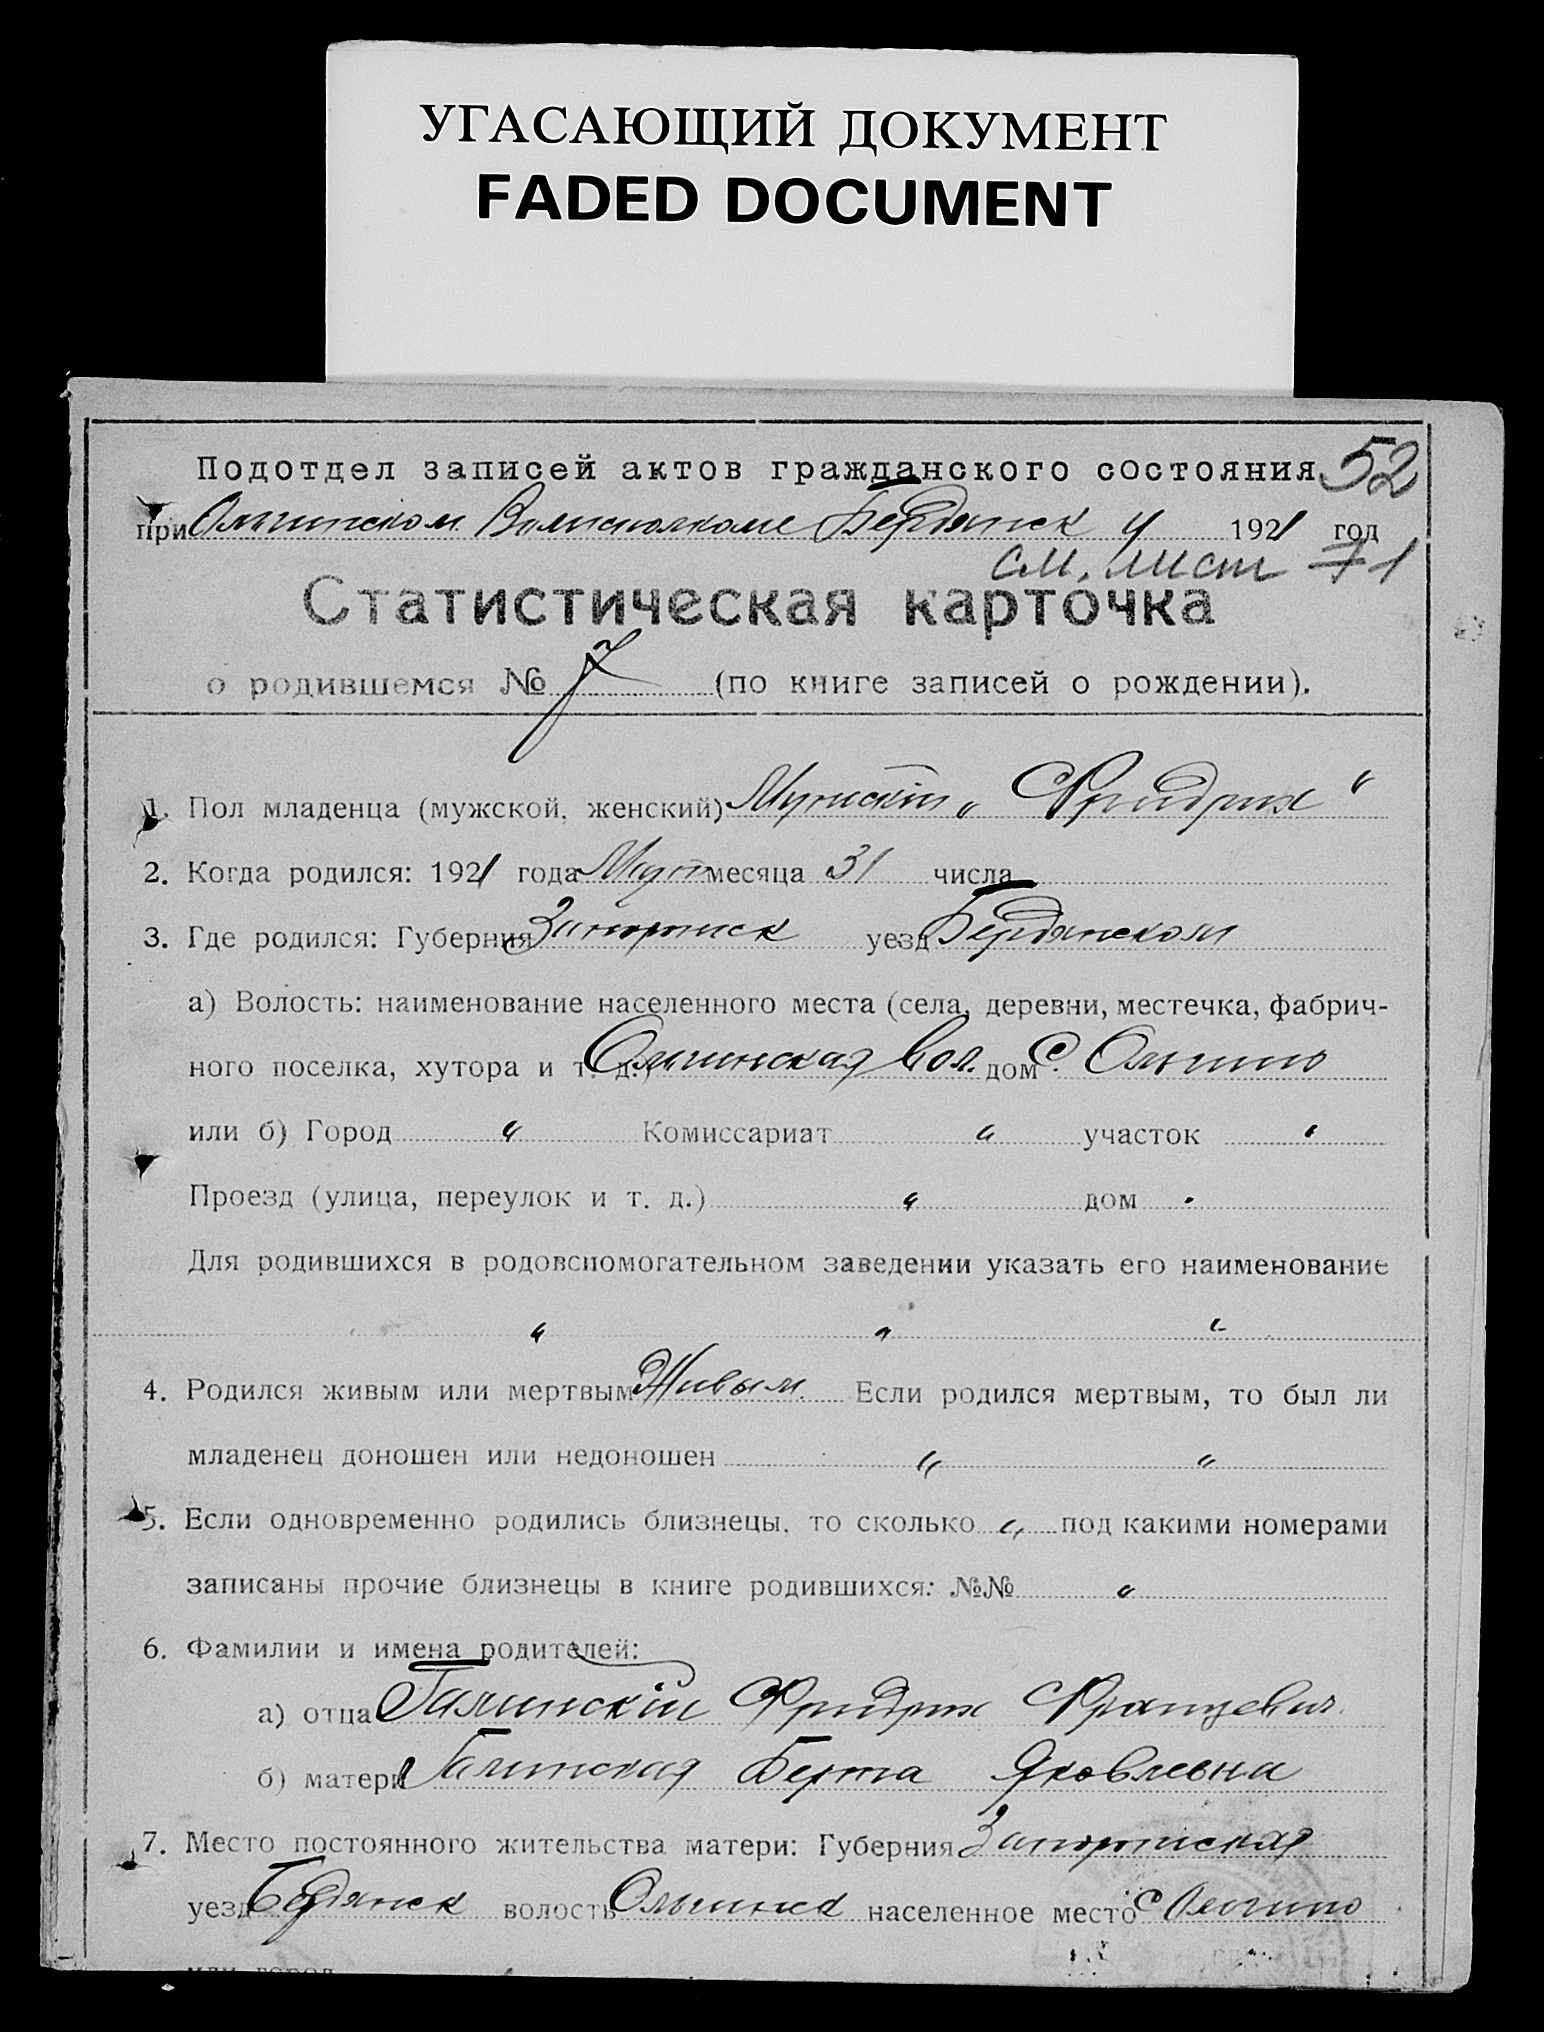 УГАСАЮЩИЙ ДОКУМЕНТ
FADED DOCUMENT
Подотдел записей актов гражданского состояния 52
при Ольгинском Волисполкоме Бердянск у 1921 год
см. лист 71
Статистическая карточка
о родившемся № 7 (по книге записей о рождении).
1. Пол младенца (мужской, женский) Мужскій „Фридрих“
2. Когда родился: 1921 года Март месяца 31 числа
3. Где родился: Губерния Запорожск уезд Бердянском
а) Волость: наименование населенного места (села, деревни, местечка, фабрич-
ного поселка, хутора и т. д.) Ольгинская вол. дом С. Ольгино
или б) Город „ Комиссариат „ участок „
Проезд (улица, переулок и т. д.) „ дом „
Для родившихся в родовспомогательном заведении указать его наименование
„ „ „
4. Родился живым или мертвым Живым. Если родился мертвым, то был ли
младенец доношен или недоношен „ „
5. Если одновременно родились близнецы, то сколько „ под какими номерами
записаны прочие близнецы в книге родившихся: №№ „
6. Фамилии и имена родителей:
а) отца Галинскій Фридрих Францевич.
б) матери Галинская Берта Яковлевна
7. Место постоянного жительства матери: Губерния Запорожская
уезд Бердянск волость Ольгинск населенное место с Ольгино
или город